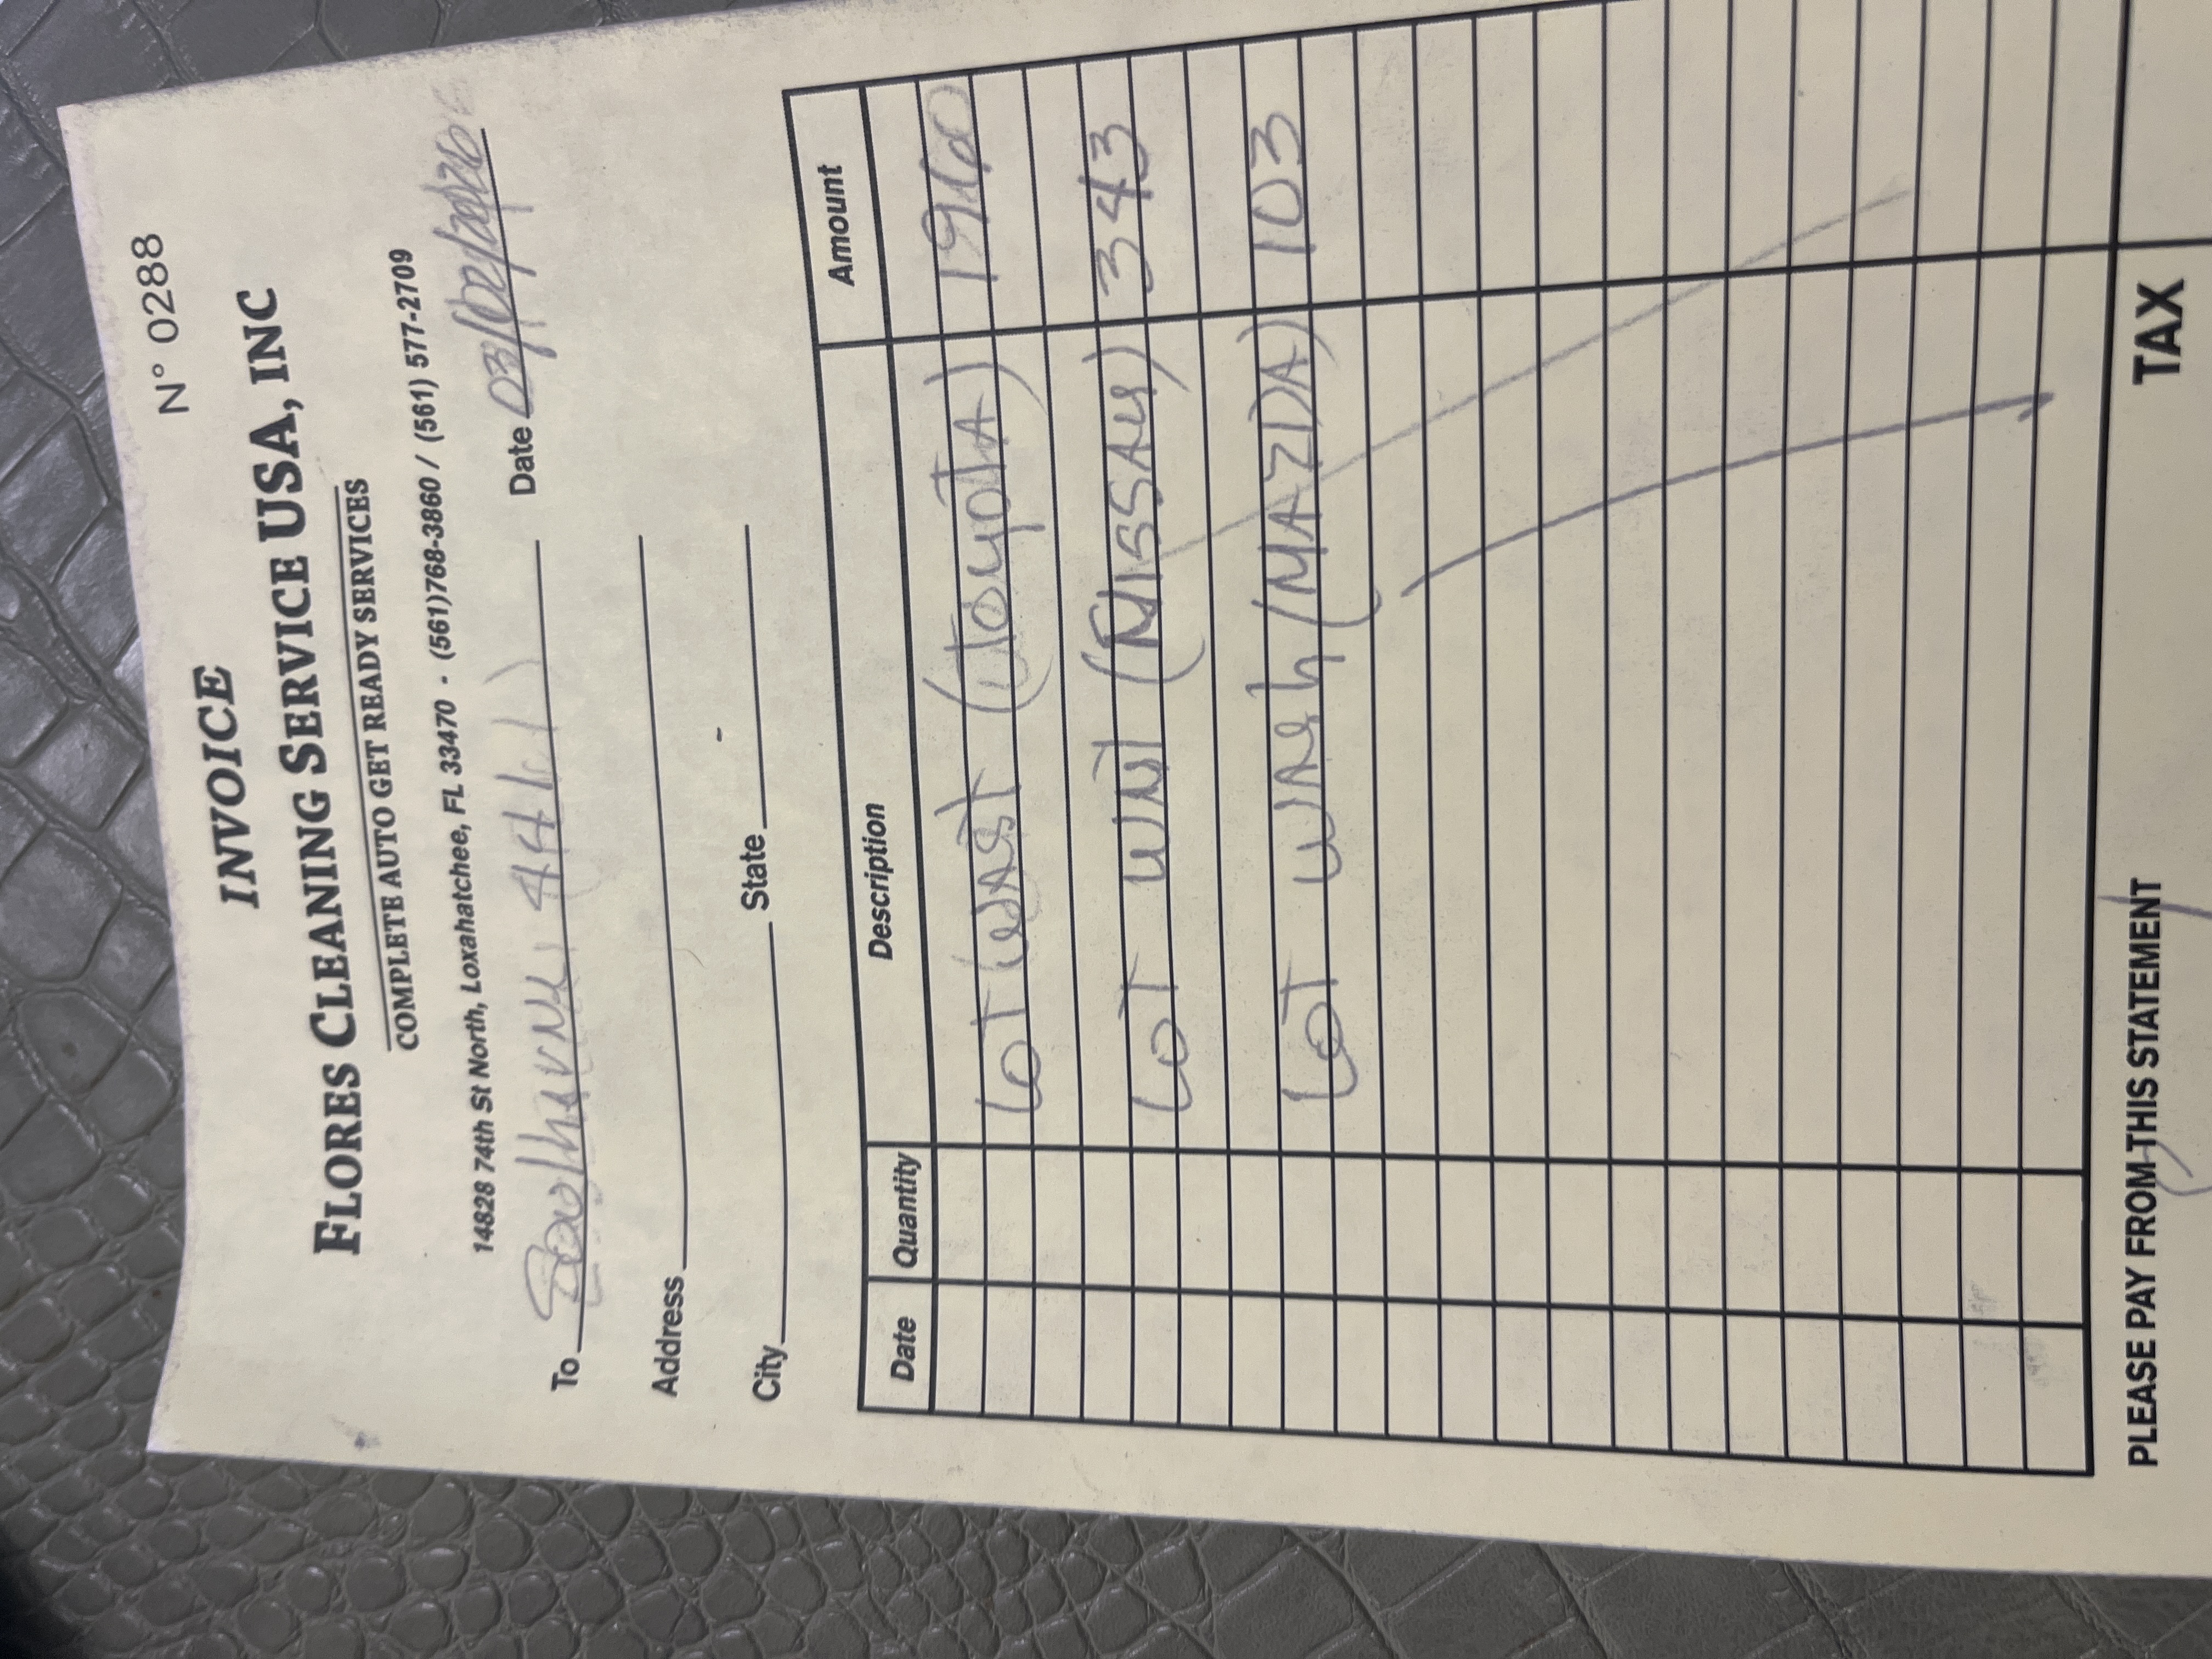 N° 0288
INVOICE
FLORES CLEANING SERVICE USA, INC
COMPLETE AUTO GET READY SERVICES
14828 74th St North, Loxahatchee, FL 33470 - (561)768-3860 / (561) 577-2709
To Southern 441 Date 03/02/2026
Address
City State
Date Quantity Description Amount
LOT (Toyota)
LOT (NISSAN) 343
LOT Wash (MAZDA) 103
PLEASE PAY FROM THIS STATEMENT TAX